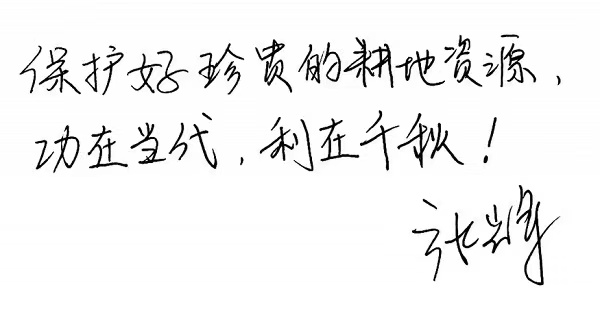 保护好珍贵的耕地资源，
功在当代，利在千秋！
张峰